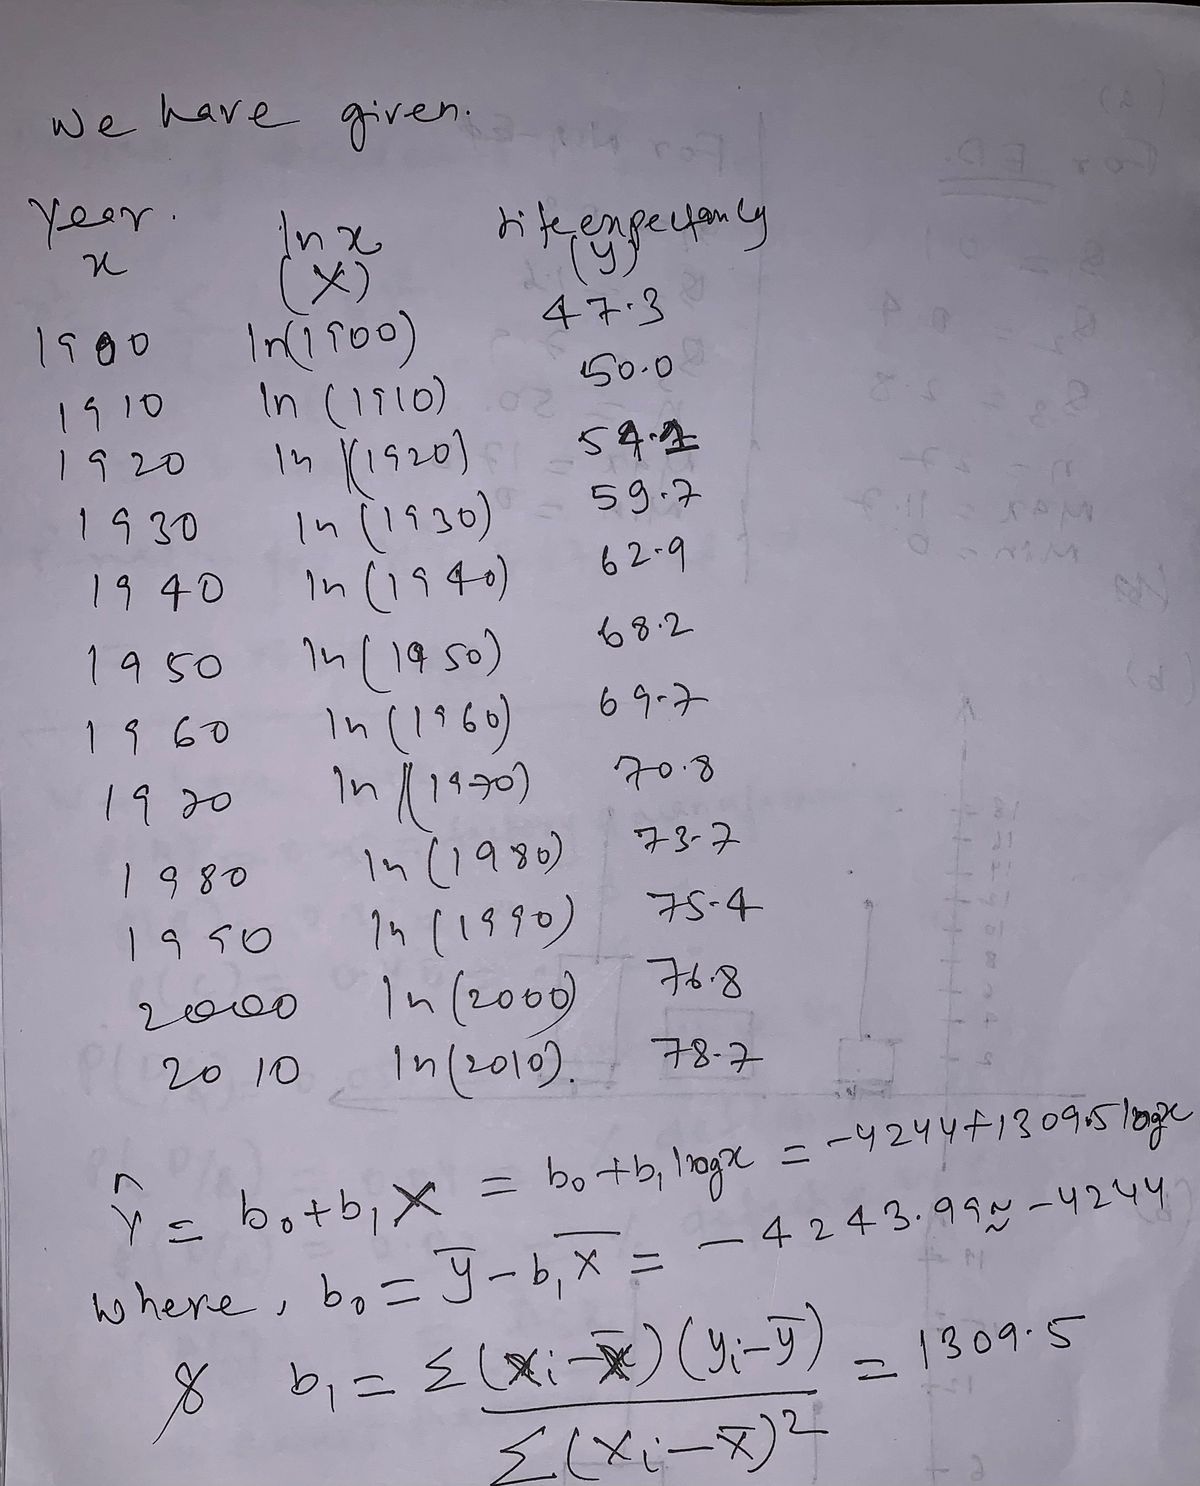 We have given.
Year. ln x Life expectancy
x (X) (y)
1900 ln(1900) 47.3
1910 ln (1910) 50.0
1920 ln (1920) 54.1
1930 ln (1930) 59.7
1940 ln (1940) 62.9
1950 ln (1950) 68.2
1960 ln (1960) 69.7
1970 ln (1970) 70.8
1980 ln (1980) 73.7
1990 ln (1990) 75.4
2000 ln (2000) 76.8
2010 ln (2010). 78.7
Ŷ = b₀+b₁X = b₀+b₁logx = -4244+1309.5logx
where, b₀ = ȳ-b₁X̄ = -4243.99≈-4244
& b₁ = Σ(Xi-X̄)(yi-ȳ) = 1309.5
Σ(Xi-X̄)²